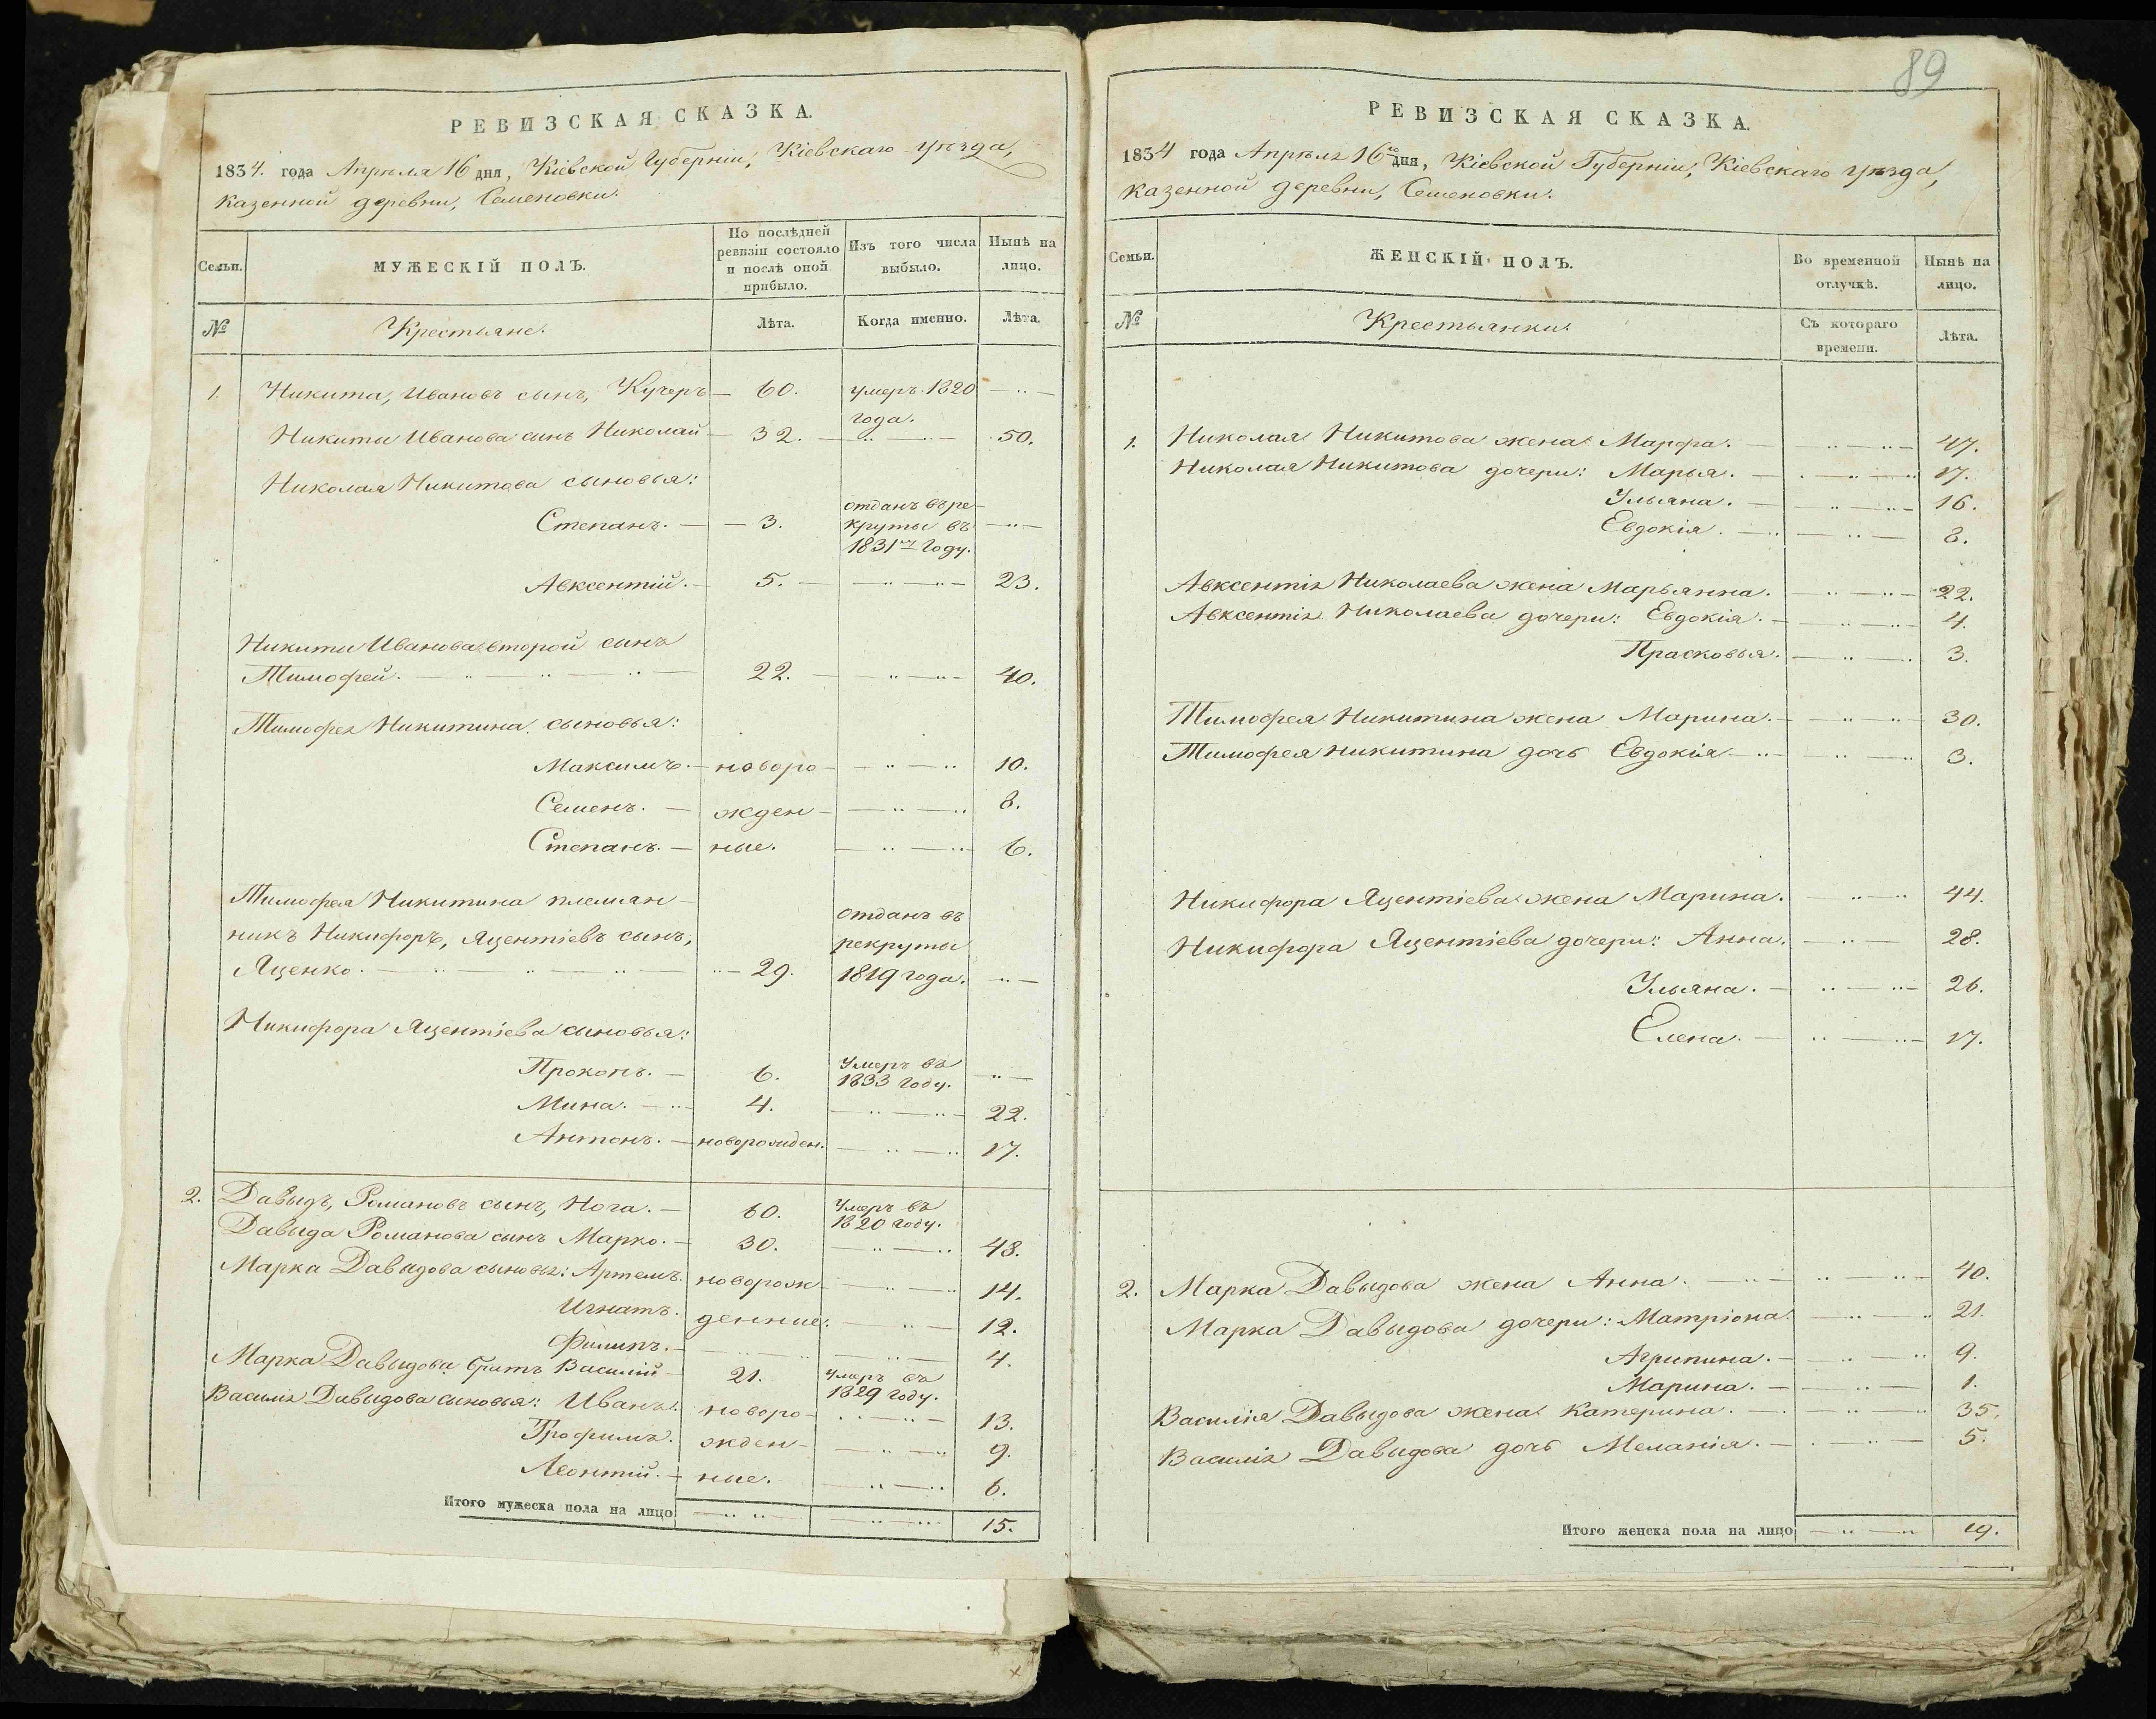 89
РЕВИЗСКАЯ СКАЗКА.
1834. года Апрѣля 16 дня, Кіевской Губерніи, Кіевскаго уѣзда,
казенной деревни, Семеновки.
Семьи. МУЖЕСКІЙ ПОЛЪ. По послѣдней ревизіи состояло и послѣ оной прибыло. Изъ того числа выбыло. Нынѣ на лицо.
№ Крестьяне. Лѣта. Когда именно. Лѣта.
1. Никита, Ивановъ сынъ, Кучеръ — 60. умеръ 1820 года. — " —
Никиты Иванова сынъ Николай — 32. — " — " — 50.
Николая Никитова сыновья:
Степанъ. — 3. отданъ въ рекруты въ 1831мъ Году. — " —
Авксентій. — 5. — " — " — 23.
Никиты Иванова второй сынъ
Тимофей. — " — " — " — 22. — " — " — 40.
Тимофея Никитина сыновья:
Максимъ. — новоро- — " — " 10.
Семенъ. — жден- — " — " 8.
Степанъ. — ные. — " — " 6.
Тимофея Никитина племян-
никъ Никифоръ, Яцентіевъ сынъ,
Яценко. — " — " — " — 29. отданъ въ рекруты 1819 года. — " —
Никифора Яцентіева сыновья:
Прокопъ. — 6. Умеръ въ 1833 году. — " —
Мина. — " 4. — " — " — 22.
Антонъ. — новорожден. — " — " 17.
2. Давыдъ, Романовъ сынъ, Нога. — 60. Умеръ въ 1820 году.
Давыда Романова сынъ Марко. — 30. — " — " 48.
Марка Давыдова сыновья: Артемъ. новорож- — " — " 14.
Игнатъ. денные: — " — 12.
Филипъ. — " — " — " — 4.
Марка Давыдова братъ Василій — 21. Умеръ въ 1829 году.
Василія Давыдова сыновья: Иванъ. новоро- " — " — 13.
Трофимъ. жден- — " — " 9.
Леонтій. — ные. — " — " 6.
Итого мужеска пола на лицо — " " — " — " 15.
РЕВИЗСКАЯ СКАЗКА.
1834 года Апрѣля 16го дня, Кіевской Губерніи, Кіевскаго уѣзда,
казенной деревни, Семеновки.
Семьи. ЖЕНСКІЙ ПОЛЪ. Во временной отлучкѣ. Нынѣ на лицо.
№ Крестьянки. Съ котораго времени. Лѣта.
1. Николая Никитова жена Марфа. — " — " — 47.
Николая Никитова дочери: Марья. — " — " 17.
Ульяна. — " — " — 16.
Евдокія. — " — " — 8.
Авксентія Николаева жена Марьянна. — " — " — 22.
Авксентія Николаева дочери: Евдокія. — " — " — 4.
Прасковья. — " — " 3.
Тимофея Никитина жена Марина. — " — " 30.
Тимофея Никитина дочь Евдокія — " — " — " 3.
Никифора Яцентіева жена Марина. — " — " 44.
Никифора Яцентіева дочери: Анна. — " — 28.
Ульяна. — " — " — 26.
Елена. — " — " — 17.
2. Марка Давыдова жена Анна. — " — " — " — 40.
Марка Давыдова дочери: Матріона. — " — " 21.
Агрипина. — " — " 9.
Марина. — " — 1.
Василія Давыдова жена Катерина. — " — " 35.
Василія Давыдова дочь Меланія. — " — 5.
Итого женска пола на лицо — " — " 19.